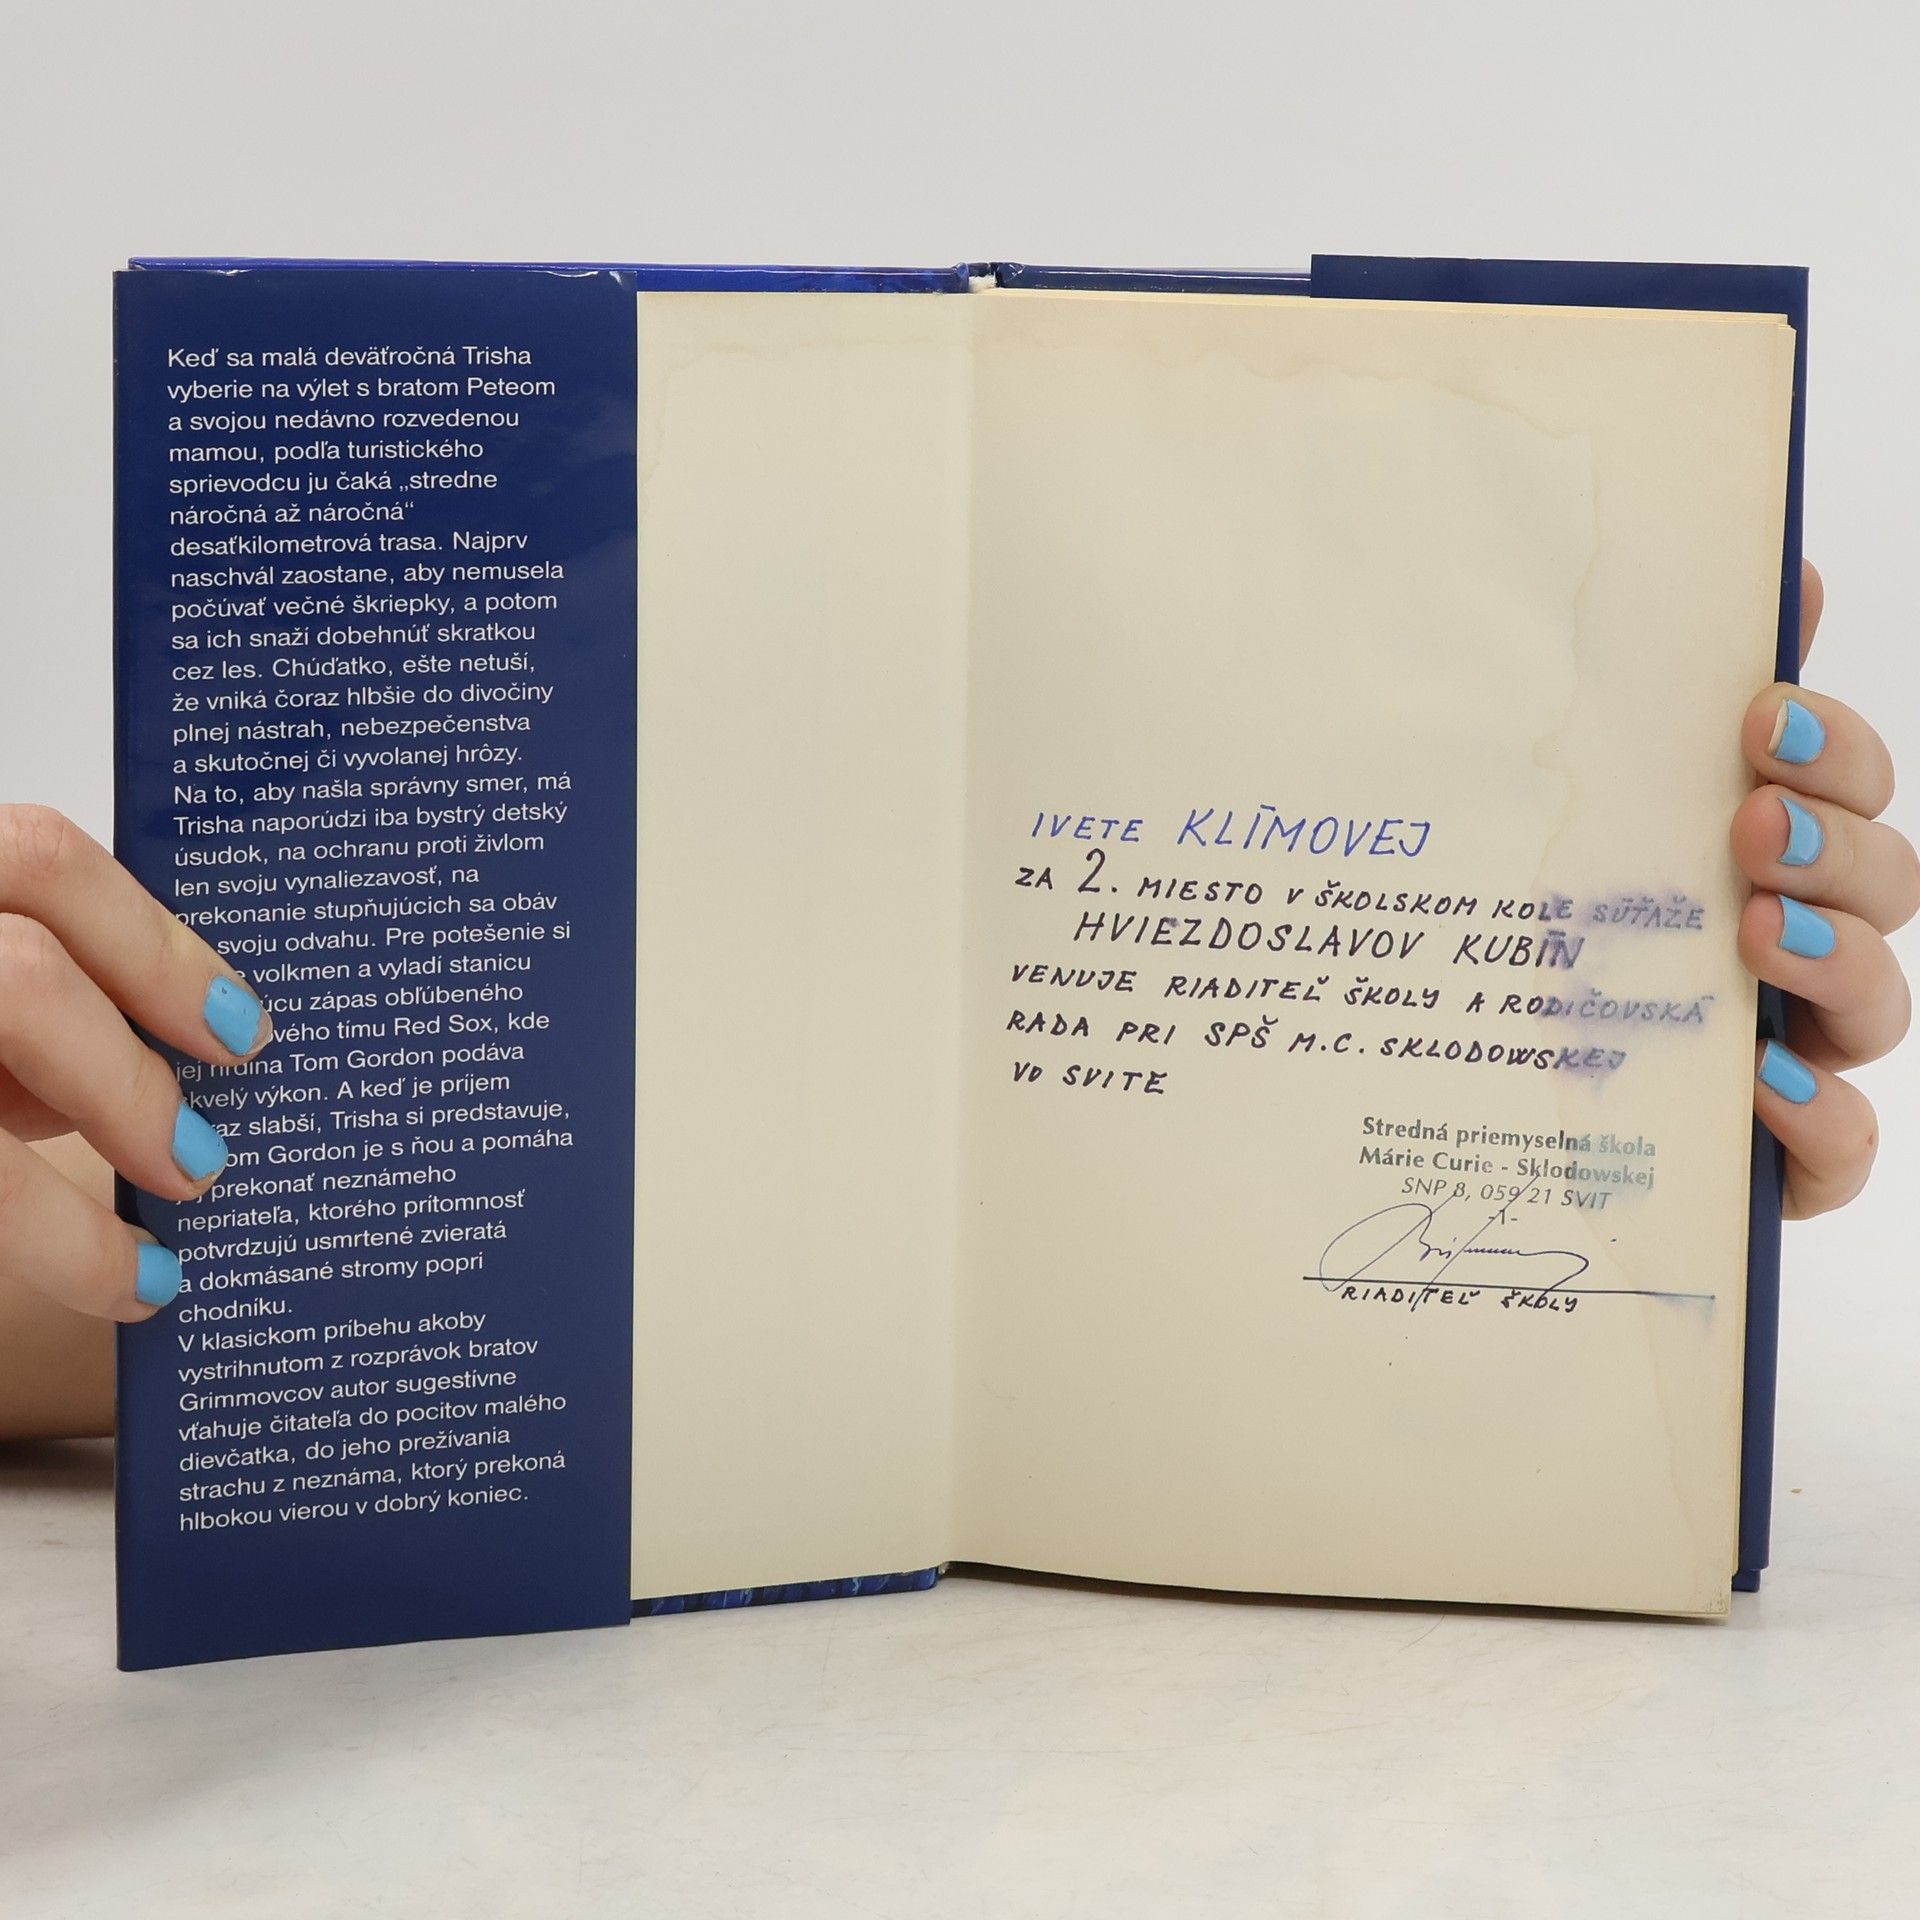 Keď sa malá deväťročná Trisha
vyberie na výlet s bratom Peteom
a svojou nedávno rozvedenou
mamou, podľa turistického
sprievodcu ju čaká „stredne
náročná až náročná“
desaťkilometrová trasa. Najprv
naschvál zaostane, aby nemusela
počúvať večné škriepky, a potom
sa ich snaží dobehnúť skratkou
cez les. Chúďatko, ešte netuší,
že vniká čoraz hlbšie do divočiny
plnej nástrah, nebezpečenstva
a skutočnej či vyvolanej hrôzy.
Na to, aby našla správny smer, má
Trisha naporúdzi iba bystrý detský
úsudok, na ochranu proti živlom
len svoju vynaliezavosť, na
prekonanie stupňujúcich sa obáv
svoju odvahu. Pre potešenie si
volkmen a vyladí stanicu
zápas obľúbeného
tímu Red Sox, kde
jej hrdina Tom Gordon podáva
skvelý výkon. A keď je príjem
slabší, Trisha si predstavuje,
Gordon je s ňou a pomáha
jej prekonať neznámeho
nepriateľa, ktorého prítomnosť
potvrdzujú usmrtené zvieratá
a dokmásané stromy popri
chodníku.
V klasickom príbehu akoby
vystrihnutom z rozprávok bratov
Grimmovcov autor sugestívne
vťahuje čitateľa do pocitov malého
dievčatka, do jeho prežívania
strachu z neznáma, ktorý prekoná
hlbokou vierou v dobrý koniec.
IVETE KLÍMOVEJ
ZA 2. MIESTO V ŠKOLSKOM KOLE SÚŤAŽE
HVIEZDOSLAVOV KUBÍN
VENUJE RIADITEĽ ŠKOLY A RODIČOVSKÁ
RADA PRI SPŠ M.C. SKLODOWSKEJ
VO SVITE
Stredná priemyselná škola
Márie Curie - Sklodowskej
SNP 8, 059 21 SVIT
-1-
RIADITEĽ ŠKOLY